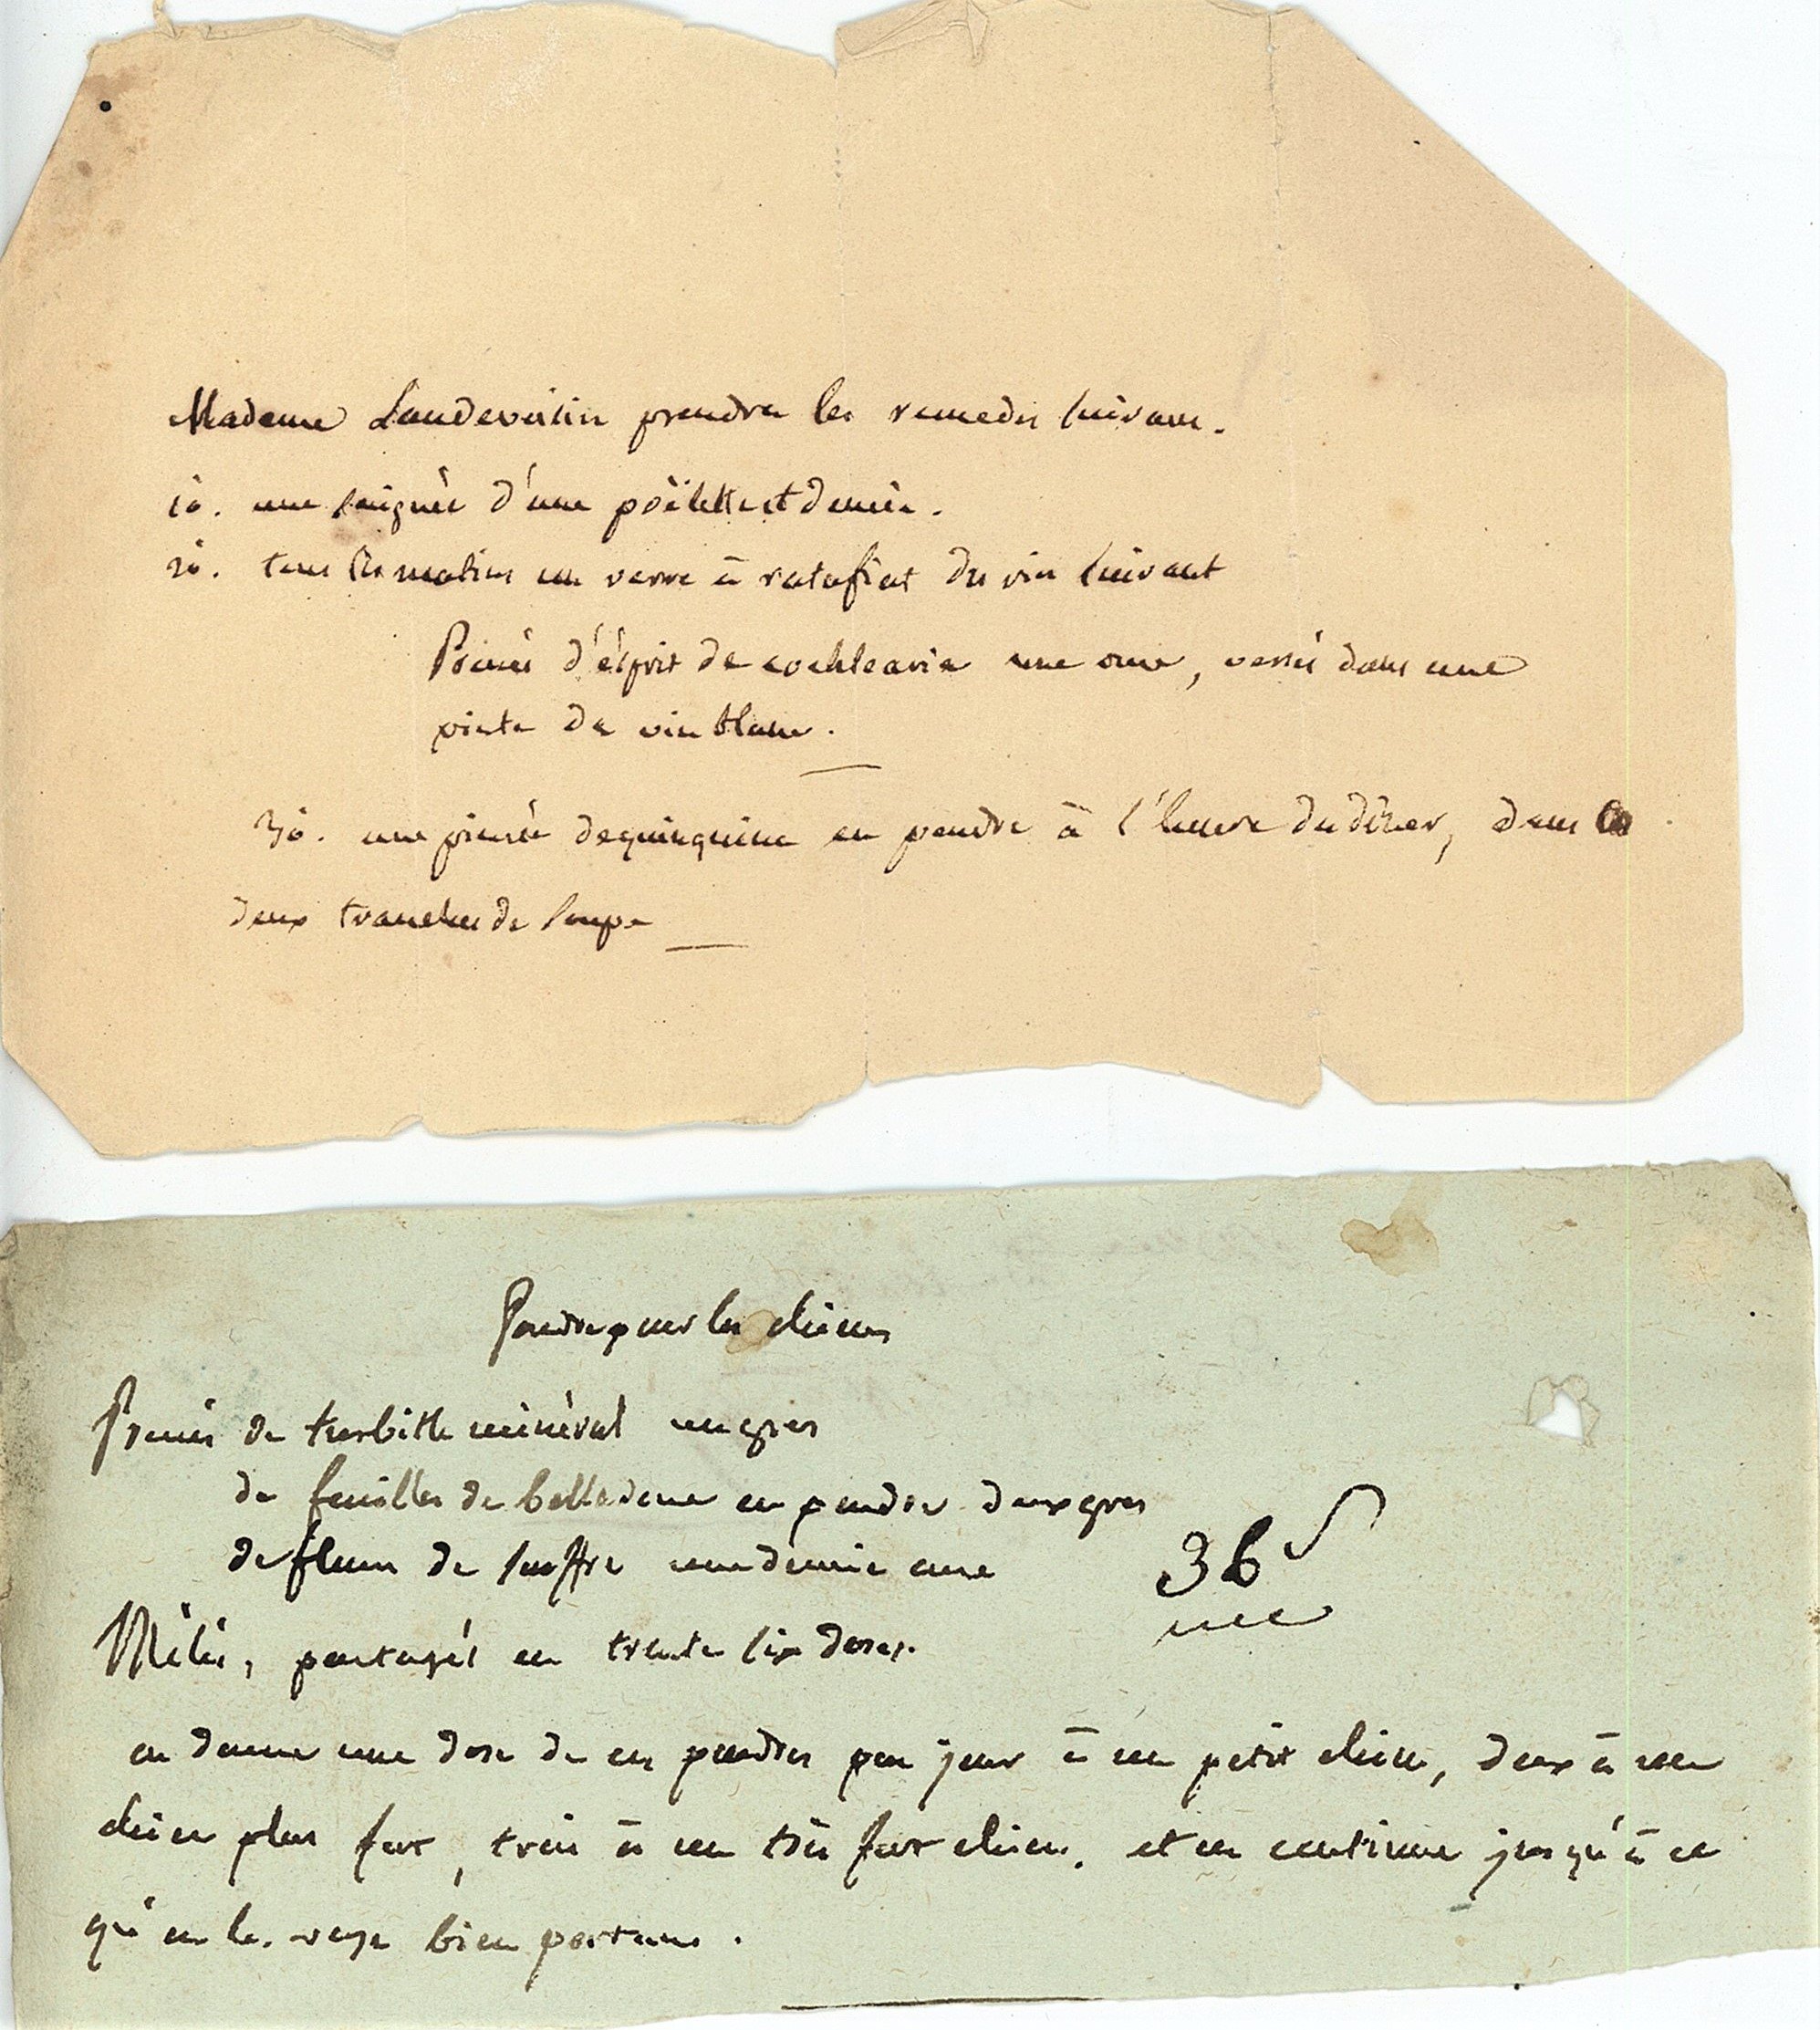 Madame Laudevoisin prendra les remedes suivans.
1o. une saignée d'une poëlette et demie.
2o. tous les matins un verre à ratafiat du vin suivant
Prenés d'ésprit de cochlearia une once, versés dans une
pinte de vin blanc.
3o. une pincée de quinquina en poudre à l'heure du dîner, dans
deux tranches de soupe
Poudre pour les chiens
Prenés de turbith minéral un gros
de feuilles de belladone en poudre deux gros
de fleurs de souffre une demie once
36
Mêlés, partagés en trente six doses.
on donne une dose de ces poudres par jour à un petit chien, deux à un
chien plus fort, trois à un très fort chien. et on continue jusqu'à ce
qu'on les voye bien portans.